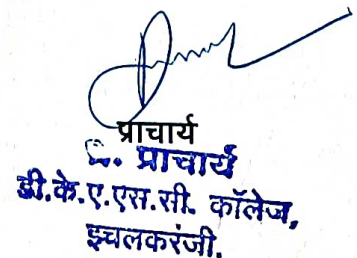 प्राचार्य
प्र. प्राचार्य
डी.के.ए.एस.सी. कॉलेज,
इचलकरंजी.